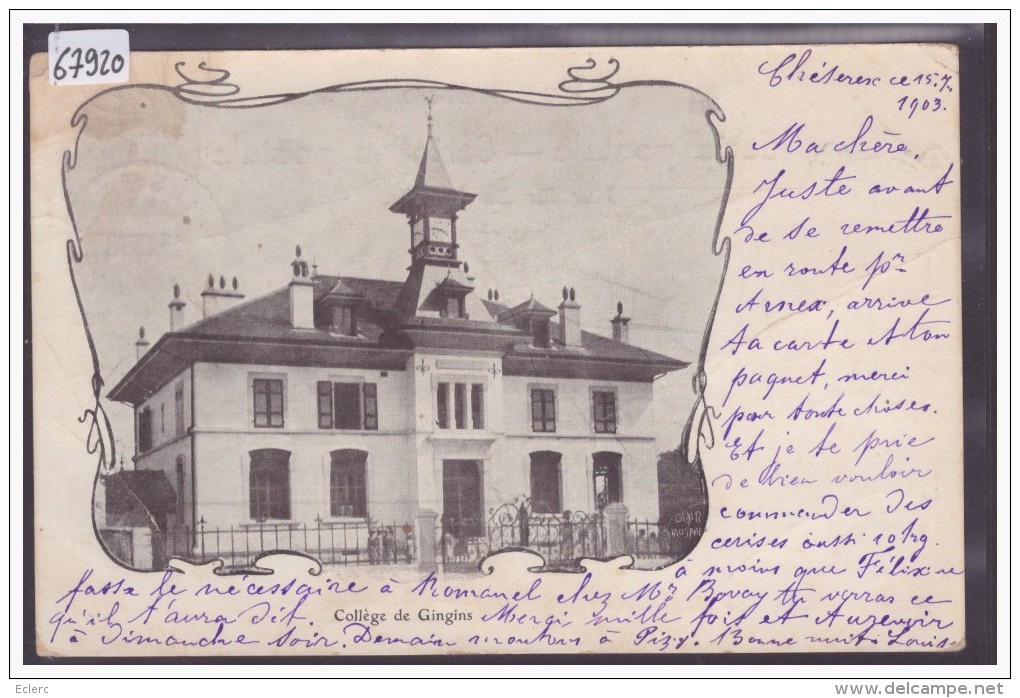 67920
Chéserex ce 15.7.
1903.
Ma chère,
Juste avant
de se remettre
en route pr
Arnex, arrive
ta carte et ton
paquet, merci
pour toute choses.
Et je te prie
de bien vouloir
commander des
cerises aussi 10 kg.
à moins que Félix ne
fasse le nécessaire à Romanel chez Mr Bovay tu verras ce
qu'il t'aura dit. Collège de Gingins Merci, mille fois et Aurevoir
à Dimanche soir. Demain montons à Pizy. Bonne nuit. Louis
Eclerc
www.delcampe.net